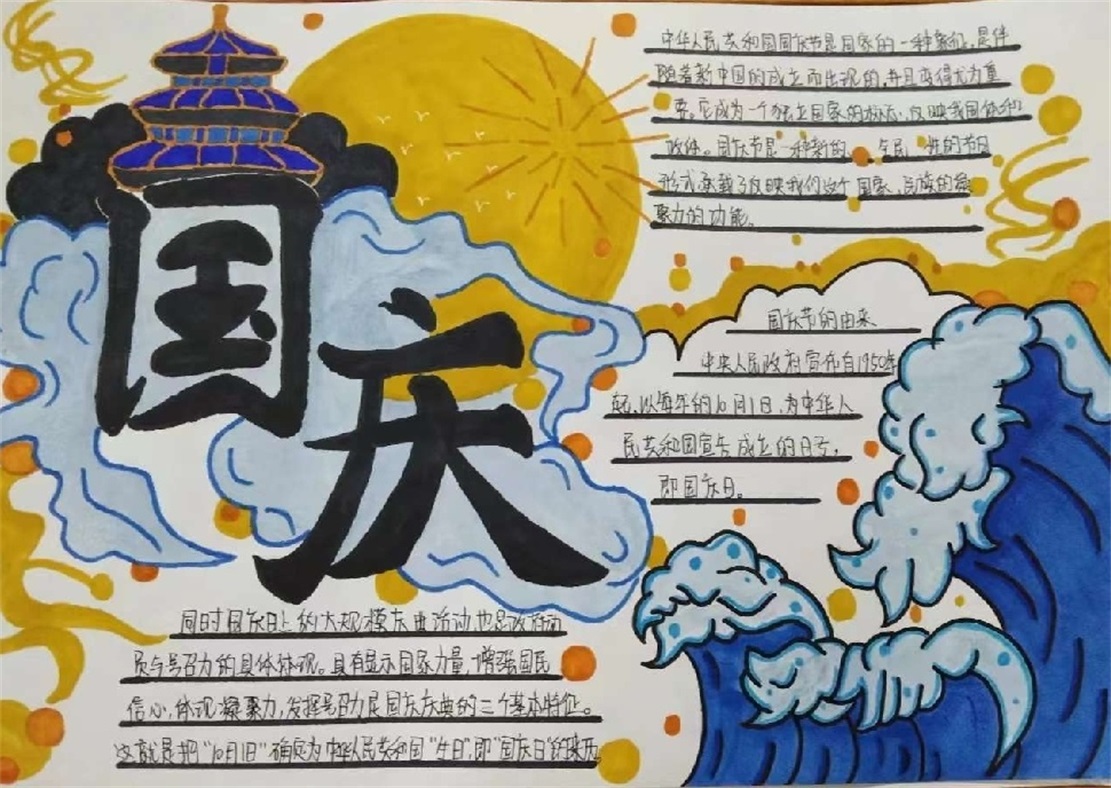 国庆
中华人民共和国国庆节是国家的一种象征,是伴
随着新中国的成立而出现的,并且变得尤为重
要。它成为一个独立国家的标志,反映我国体和
政体。国庆节是一种新的、全民性的节日
形式,承载了反映我们这个国家、民族的凝
聚力的功能。
国庆节的由来
中央人民政府宣布自1950年
起,以每年的10月1日,为中华人
民共和国宣告成立的日子,
即国庆日。
同时国庆日上的大规模庆典活动也是政府动
员与号召力的具体体现。具有显示国家力量,增强国民
信心,体现凝聚力,发挥号召力是国庆庆典的三个基本特征。
这就是把“10月1日”确定为中华人民共和国“生日”,即“国庆日”的来历